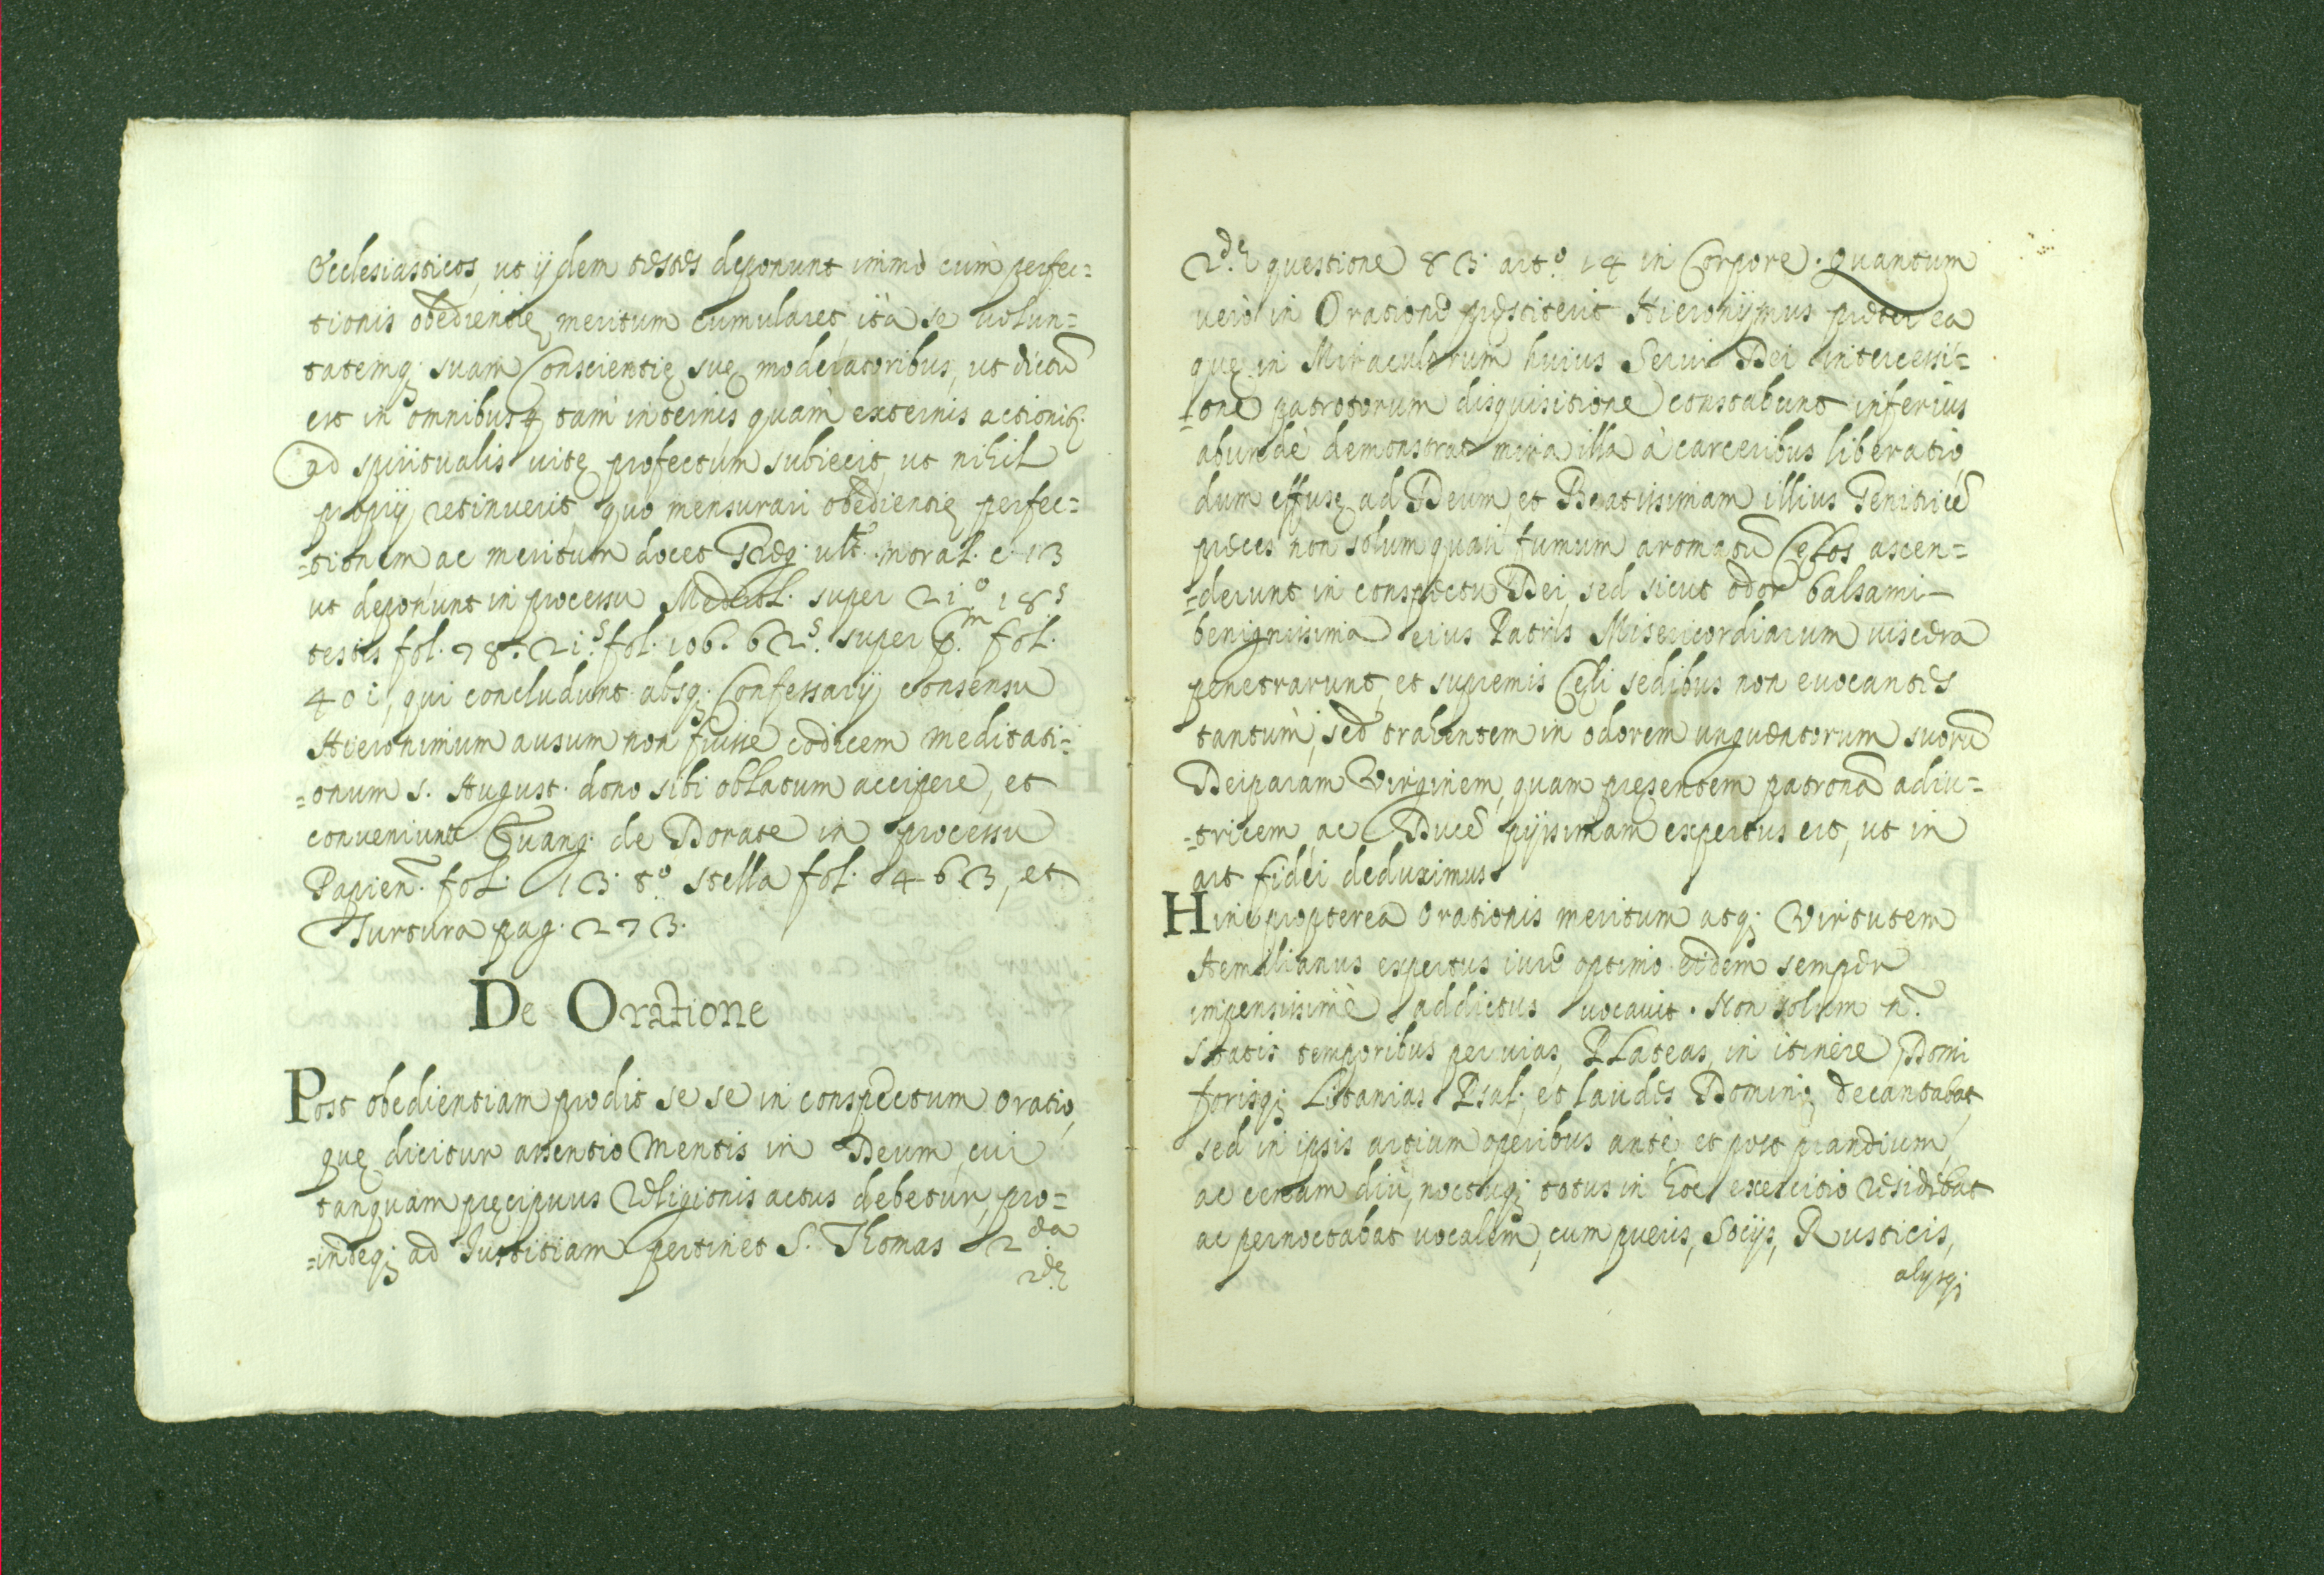 Ecclesiasticos, ut ijdem testes deponunt immò cum perfec=
tionis obedientię meritum cumularet ità se volun=
tatemq; suam Conscientię suę moderatoribus, ut dictũ
est in omnibusq; tam internis quàm externis actionib;
ad spiritualis vitę profectum subiecit, ut nihil
proprij retinuerit, quo mensurari obedientię perfec=
=tionem ac meritum docet Greg: ult.º moral. c. 13
ut deponunt in processu Mediol. super 21.º 18.s
testis fol. 98. 21.s fol. 106. 62.s super 6.m fol.
401, qui concludunt absq; Confessarij consensu
Hieronimum ausum non fuisse codicem meditati=
=onum s. August. dono sibi oblatum accipere, et
conveniunt Evang. de Dorate in processu
Papien. fol. 13. t.º stella fol. 463, et
Turtura pag. 273.
De Oratione
Post obedientiam prodit se se in conspectum oratio,
quę dicitur assentio Mentis in Deum, cui
tanquam pręcipuus Religionis actus debetur, pro=
=indeq; ad Iustitiam pertinet S. Thomas 2da
2dę
2.dę questione 83. art.º 14 in Corpore. Quantum
verò in Oratione pręstiterit Hieronijmus pręter ea
quę in Miraculorum huius Servi Dei intercessi=
=one patratorum disquisitione constabunt inferius
abundè demonstrat mira illa à carceribus liberatio,
dum effusę ad Deum, et Beatissimam illius Genitricẽ
pręces non solum quasi fumum aromatũ Cęlos ascen=
=derunt in conspectu Dei, sed sicut odor balsami
benignissima eius Patris Misericordiarum viscera
penetrarunt, et supremis Cęli sedibus non evocantes
tantùm, sed trahentem in odorem unguentorum suorũ
Deiparam Virginem, quam pręsentem patronã adiu=
=tricem ac Ducẽ pijssimam expertus est, ut in
art fidei deduximus
Hinc propterea orationis meritum atq; Virtutem
Aemilianus expertus iure optimo eidem semper
impensissimè addictus vocavit. Non solum n.
statis temporibus per vias, Plateas, in itinere Domi
forisq; Litanias Psal. et laudes Dominę decantabat,
sed in ipsis artium operibus antè, et post prandium,
ac cenam diù, noctuq; totus in hoc exercitio residebat
ac pernoctabat vocalem, cum pueris, Socijs, Rusticis,
alysq;